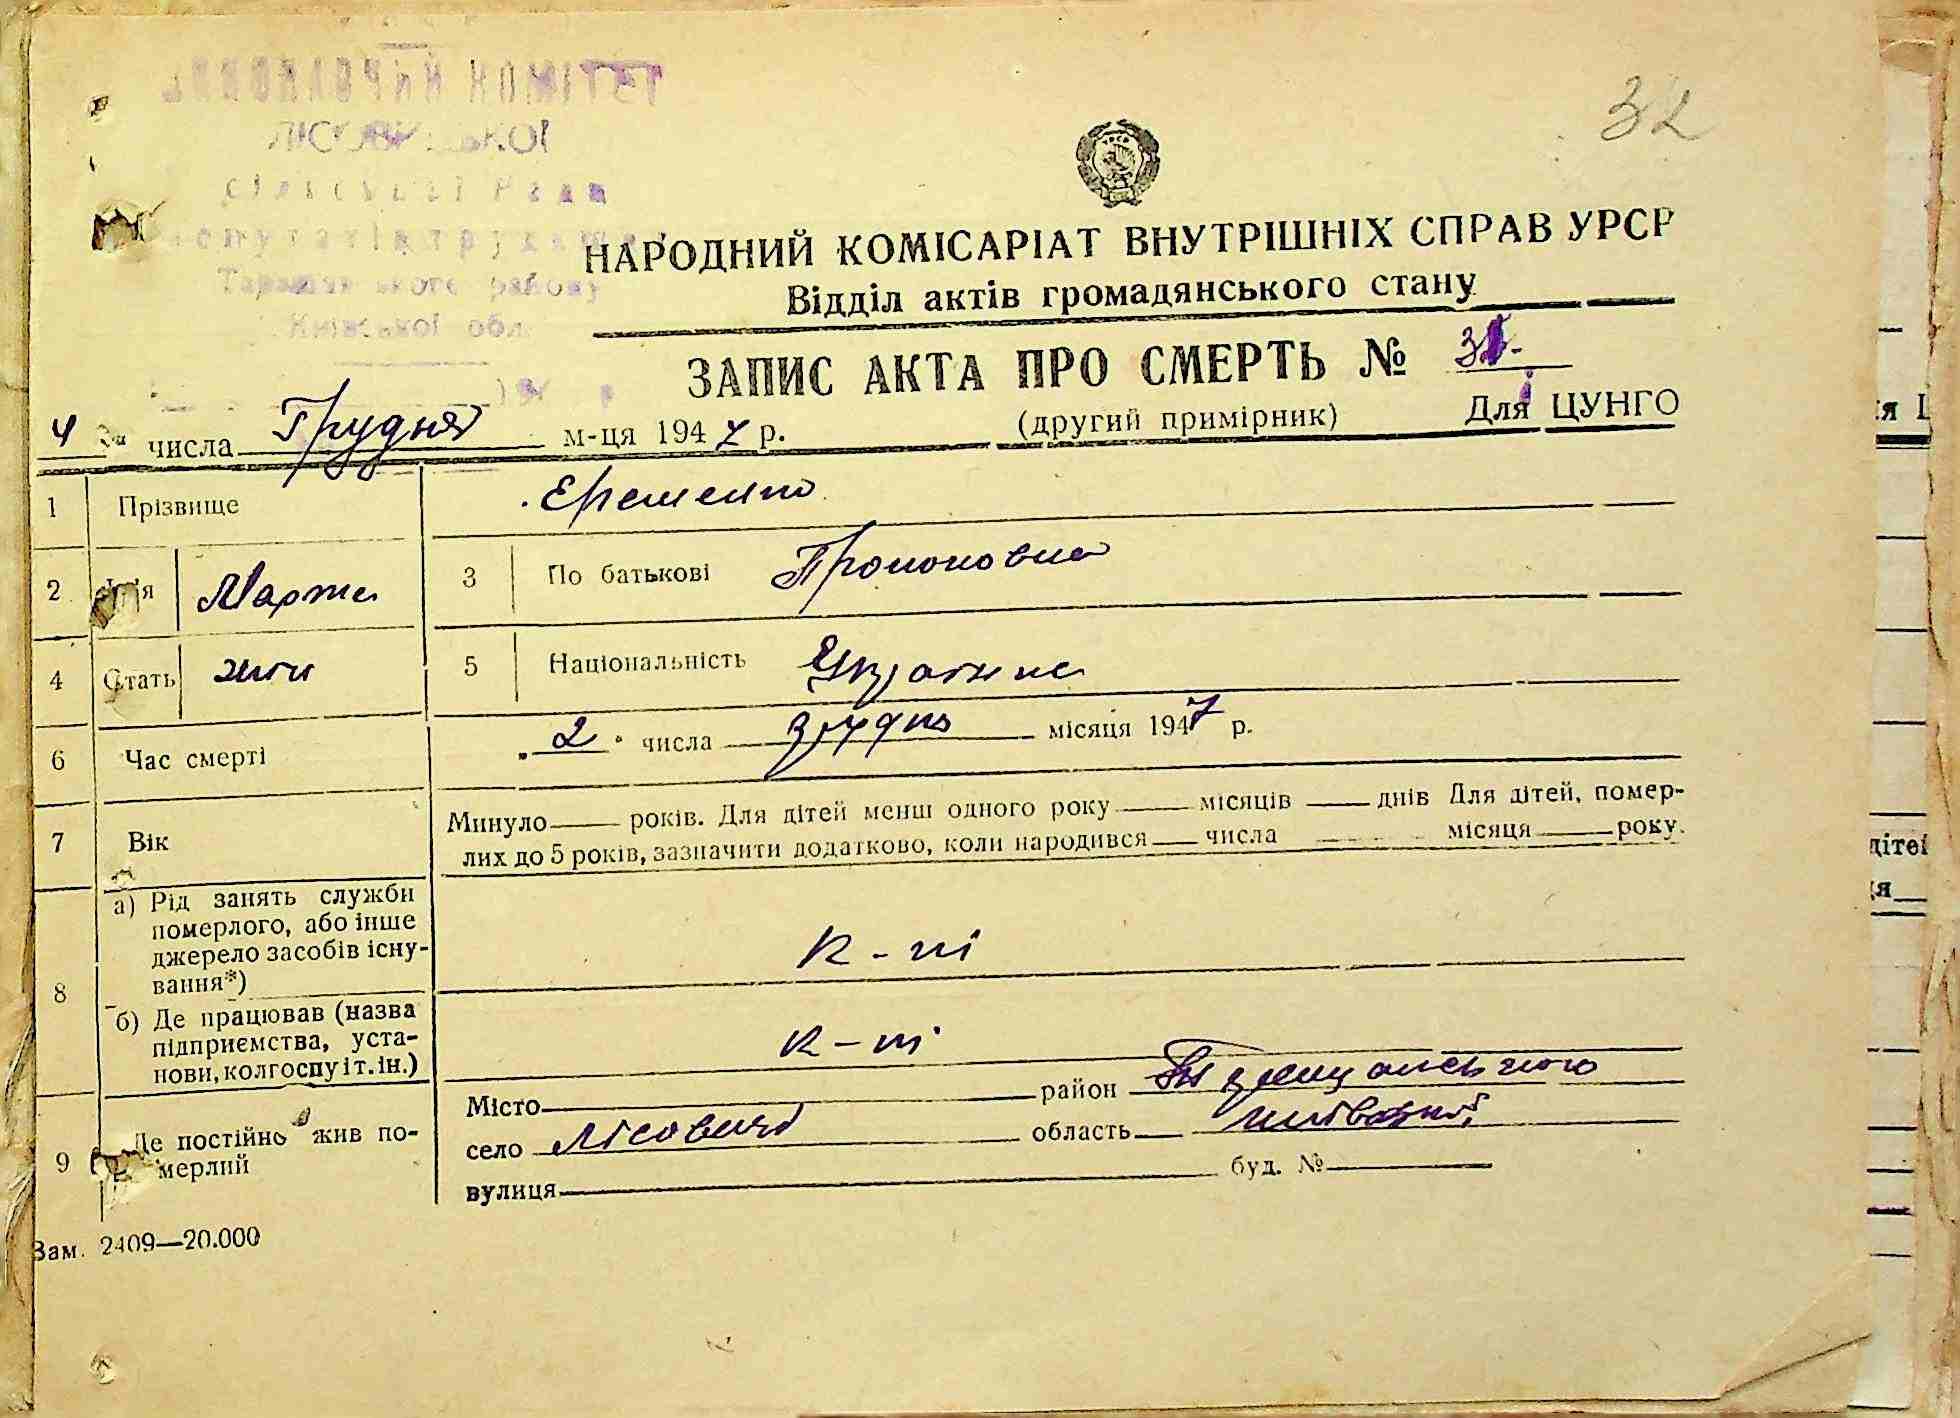 32
ВИКОНКОМІТЕТ
ЛІСОВИЦЬКОЇ
сільської Ради
депутатів трудящих
Таращанського району
Київської обл.
УРСР
НАРОДНИЙ КОМІСАРІАТ ВНУТРІШНІХ СПРАВ УРСР
Відділ актів громадянського стану
ЗАПИС АКТА ПРО СМЕРТЬ №
4 числа Грудня м-ця 1947 р. (другий примірник) Для ЦУНГО
1 Прізвище Єременко
2 Ім'я Марта 3 По батькові Прокоповна
4 Стать жін 5 Національність Українка
6 Час смерті „2“ числа грудня місяця 1947 р.
7 Вік Минуло років. Для дітей менш одного року місяців днів Для дітей, помер-
лих до 5 років, зазначити додатково, коли народився числа місяця року.
8 а) Рід занять служби
померлого, або інше
джерело засобів існу-
вання*) к-пі
б) Де працював (назва
підприємства, уста-
нови, колгоспу і т. ін.) к-пі
9 Де постійно жив по-
мерлий
Місто район Таращанського
село Лісовичі область Київської
вулиця буд. №
Зам. 2409—20.000